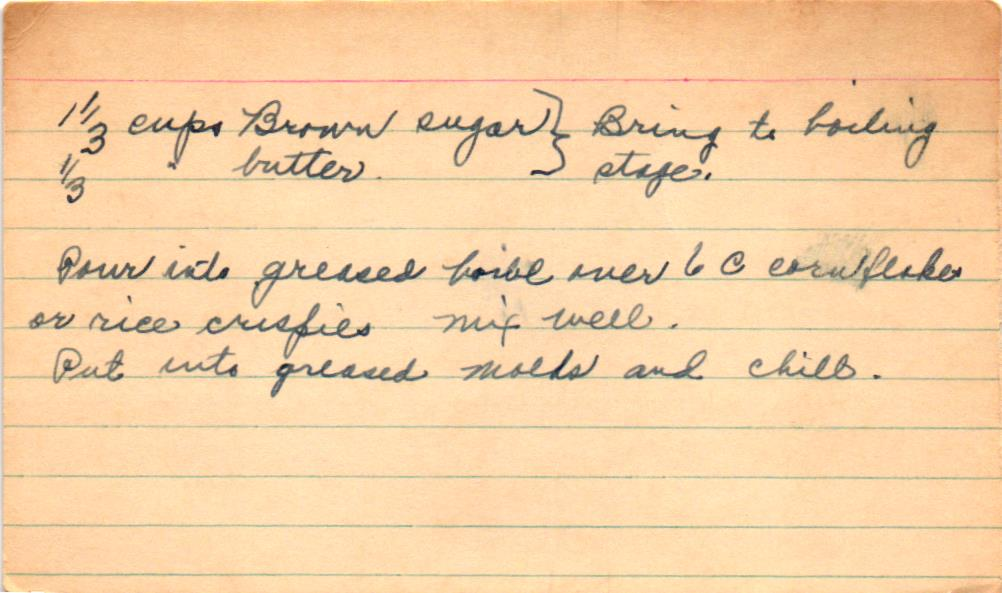 1 1/3 cups Brown sugar } Bring to boiling
1/3 " butter. stage.
Pour into greased bowl over 6 C cornflakes
or rice crispies mix well.
Put into greased molds and chill.